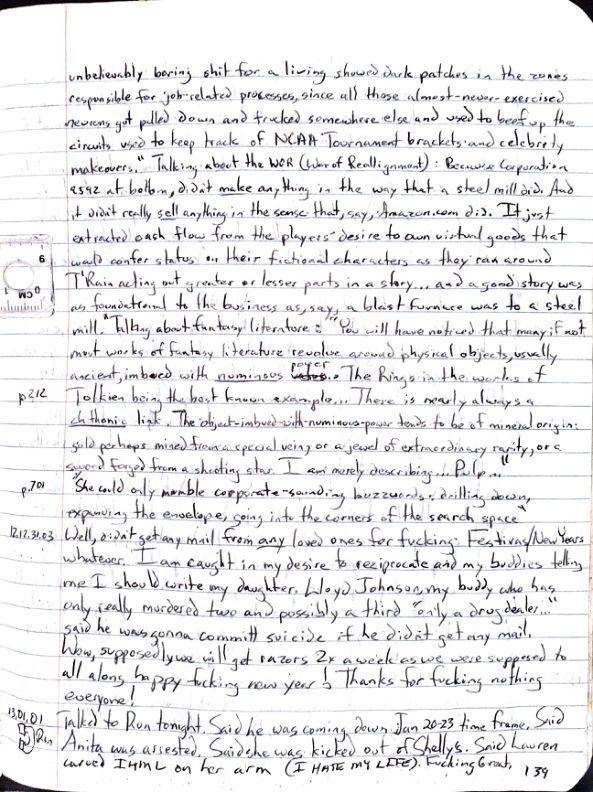 unbelievably boring shit for a living showed dark patches in the zones
responsible for job-related processes, since all those almost-never-exercised
neurons got pulled down and trucked somewhere else and used to beef up the
circuits used to keep track of NCAA Tournament brackets and celebrity
makeovers." Talking about the WOR (War of Reallignment): Because Corporation
9592 at bottom, didn't make anything in the way that a steel mill did. And
it didn't really sell anything in the sense that, say, Amazon.com did. It just
extracted cash flow from the players' desire to own virtual goods that
would confer status on their fictional characters as they ran around
T'Rain acting out greater or lesser parts in a story... and a good story was
as foundational to the business as, say, a blast furnace was to a steel
mill." Talking about fantasy literature: "You will have noticed that many if not
most works of fantasy literature revolve around physical objects, usually
ancient, imbued with numinous power... The Rings in the works of
p212 Tolkien being the best known example... There is nearly always a
chthonic link. The object-imbued-with-numinous-power tends to be of mineral origin:
gold perhaps mined from a special vein, or a jewel of extraordinary rarity, or a
sword forged from a shooting star. I am merely describing... Pulp..."
p.701 "She could only mumble corporate-sounding buzzwords: drilling down,
expanding the envelope, going into the corners of the search space"
12.12.31.03 Well, didn't get any mail from any loved ones for fucking Festivus/New Years
whatever. I am caught in my desire to reciprocate and my buddies telling
me I should write my daughter. Lloyd Johnson, my buddy who has
only really murdered two and possibly a third "only a drug dealer..."
said he was gonna committ suicide if he didn't get any mail.
Wow, supposedly we will get razors 2x a week as we were supposed to
all along happy fucking new year! Thanks for fucking nothing
everyone!
13.01.01 Talked to Ron tonight. Said he was coming down Jan 20-23 time frame. Said
Ron Anita was arrested. Said she was kicked out of Shellys. Said Lauren
carved IHML on her arm (I HATE MY LIFE). Fucking Great.
139
6
0
CM